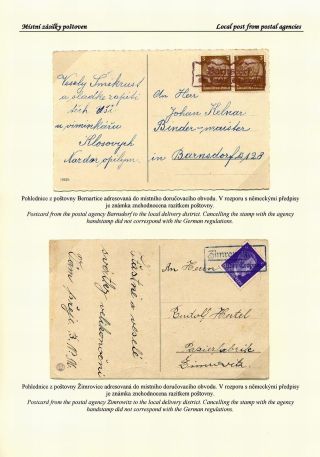 Místní zásilky poštoven
Local post from postal agencies
Veselý
a sladké
a
An Herr
Johan Kelnar
Binder-meister
in Barnsdorf
Pohlednice z poštovny Bernartice adresovaná do místního doručovacího obvodu. V rozporu s německými předpisy
je známka znehodnocena razítkem poštovny.
Postcard from the postal agency Barnsdorf to the local delivery district. Cancelling the stamp with the agency
handstamp did not correspond with the German regulations.
Šťastné a veselé
svátky velikonoční
Vám přeje
An Herrn
Rudolf Hertel
Papierfabrik
Zimrovitz
Pohlednice z poštovny Žimrovice adresovaná do místního doručovacího obvodu. V rozporu s německými předpisy
je známka znehodnocena razítkem poštovny.
Postcard from the postal agency Zimrowitz to the local delivery district. Cancelling the stamp with the agency
handstamp did not correspond with the German regulations.